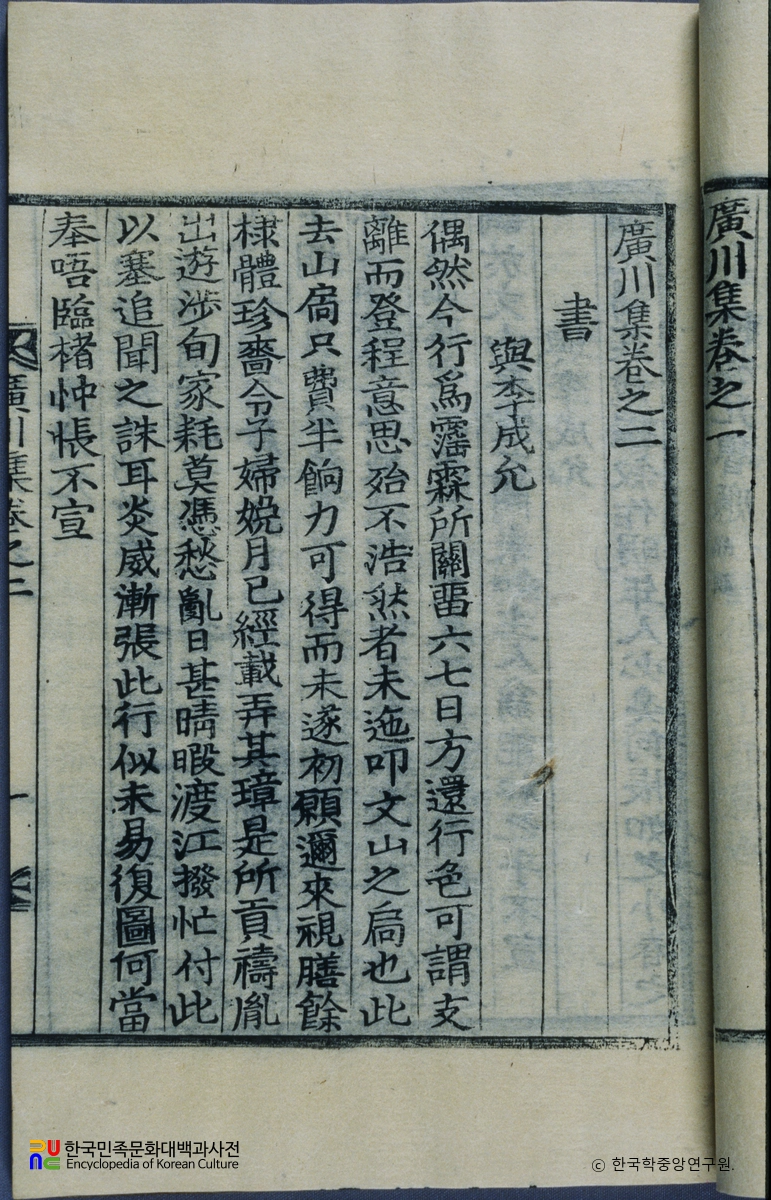 廣川集卷之一
廣川集卷之二
書
與李成允
偶然今行爲霱霖所關留六七日方還行色可謂支
離而登程意思殆不浩然者未迤叩文山之扃也此
去山扃只費半餉力可得而未遂初願邇來視膳餘
棣體珍嗇令子婦娩月已經載弄其璋是所貢禱胤
出遊涉旬家耗莫憑愁亂日甚晴暇渡江撥忙付此
以塞追聞之誅耳炎威漸張此行似未易復圖何當
奉唔臨楮忡悵不宣
廣川集卷之二
一
한국민족문화대백과사전
Encyclopedia of Korean Culture
© 한국학중앙연구원.